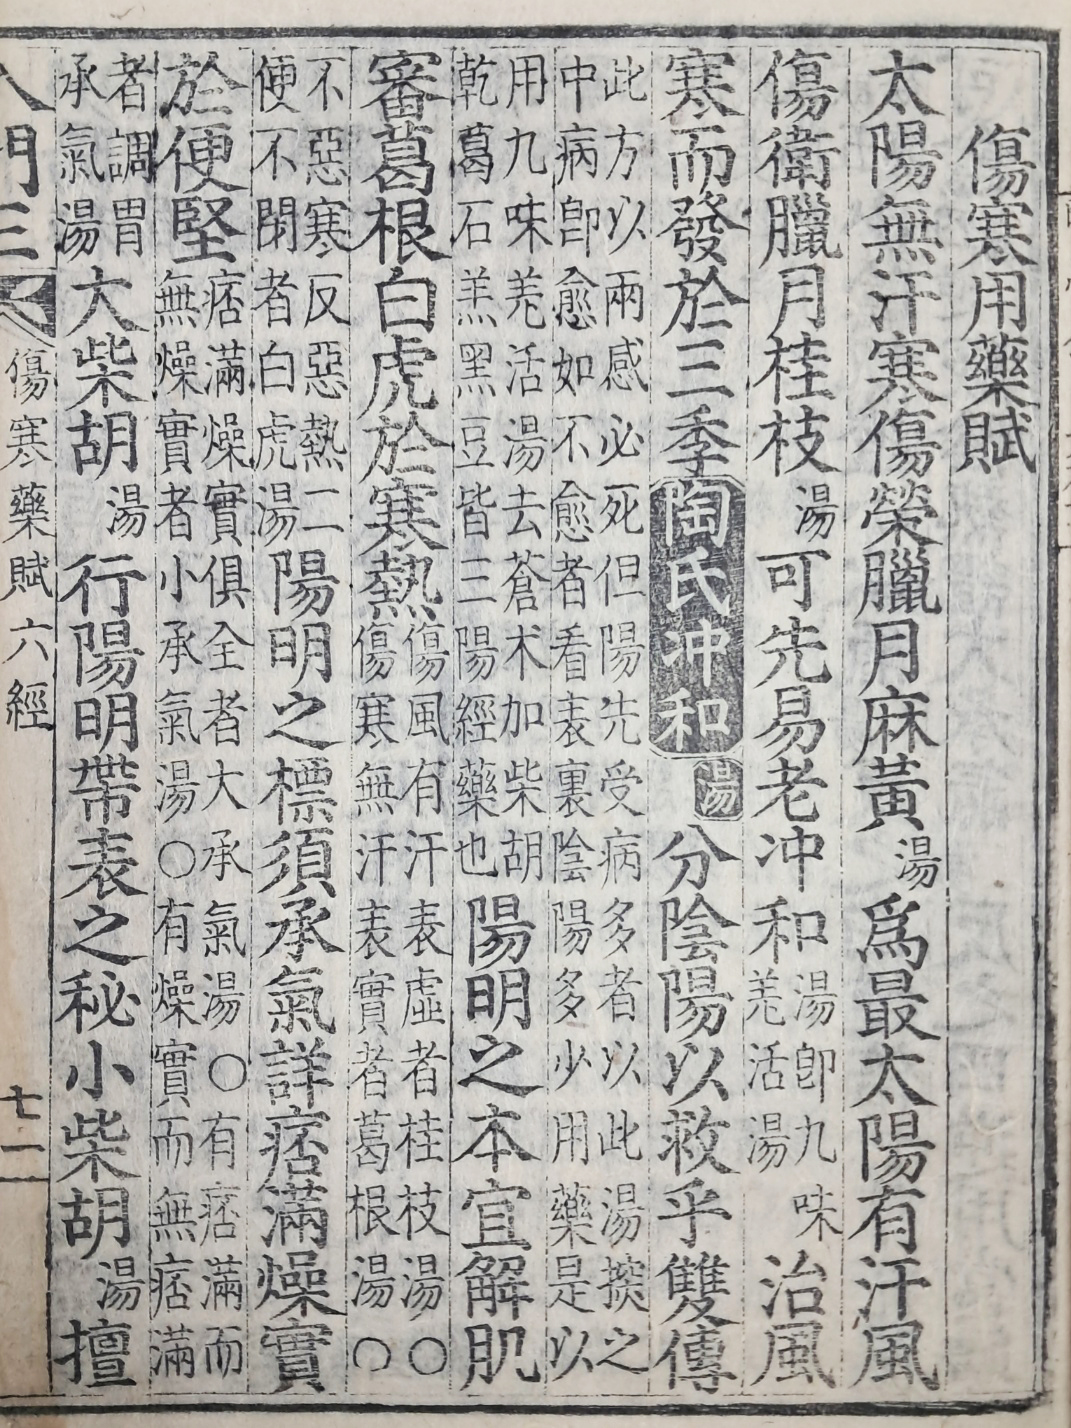 傷寒用藥賦
太陽無汗寒傷榮臘月麻黃湯爲最太陽有汗風
傷衛臘月桂枝湯可先易老冲和湯卽九味羗活湯治風
寒而發於三季陶氏冲和湯分陰陽以救乎雙傳
此方以兩感必死但陽先受病多者以此湯探之
中病卽愈如不愈者看表裏陰陽多少用藥是以
用九味羗活湯去蒼术加柴胡
乾葛石羔黑豆皆三陽經藥也
陽明之本宜解肌
審葛根白虎於寒熱
傷風有汗表虛者桂枝湯○
傷寒無汗表實者葛根湯○
不惡寒反惡熱二
便不閉者白虎湯
陽明之標須承氣詳痞滿燥實
於便堅
痞滿燥實俱全者大承氣湯○有痞滿而
無燥實者小承氣湯○有燥實而無痞滿
者調胃
承氣湯
大柴胡湯行陽明帶表之秘小柴胡湯擅
門三
傷寒藥賦六經
七一